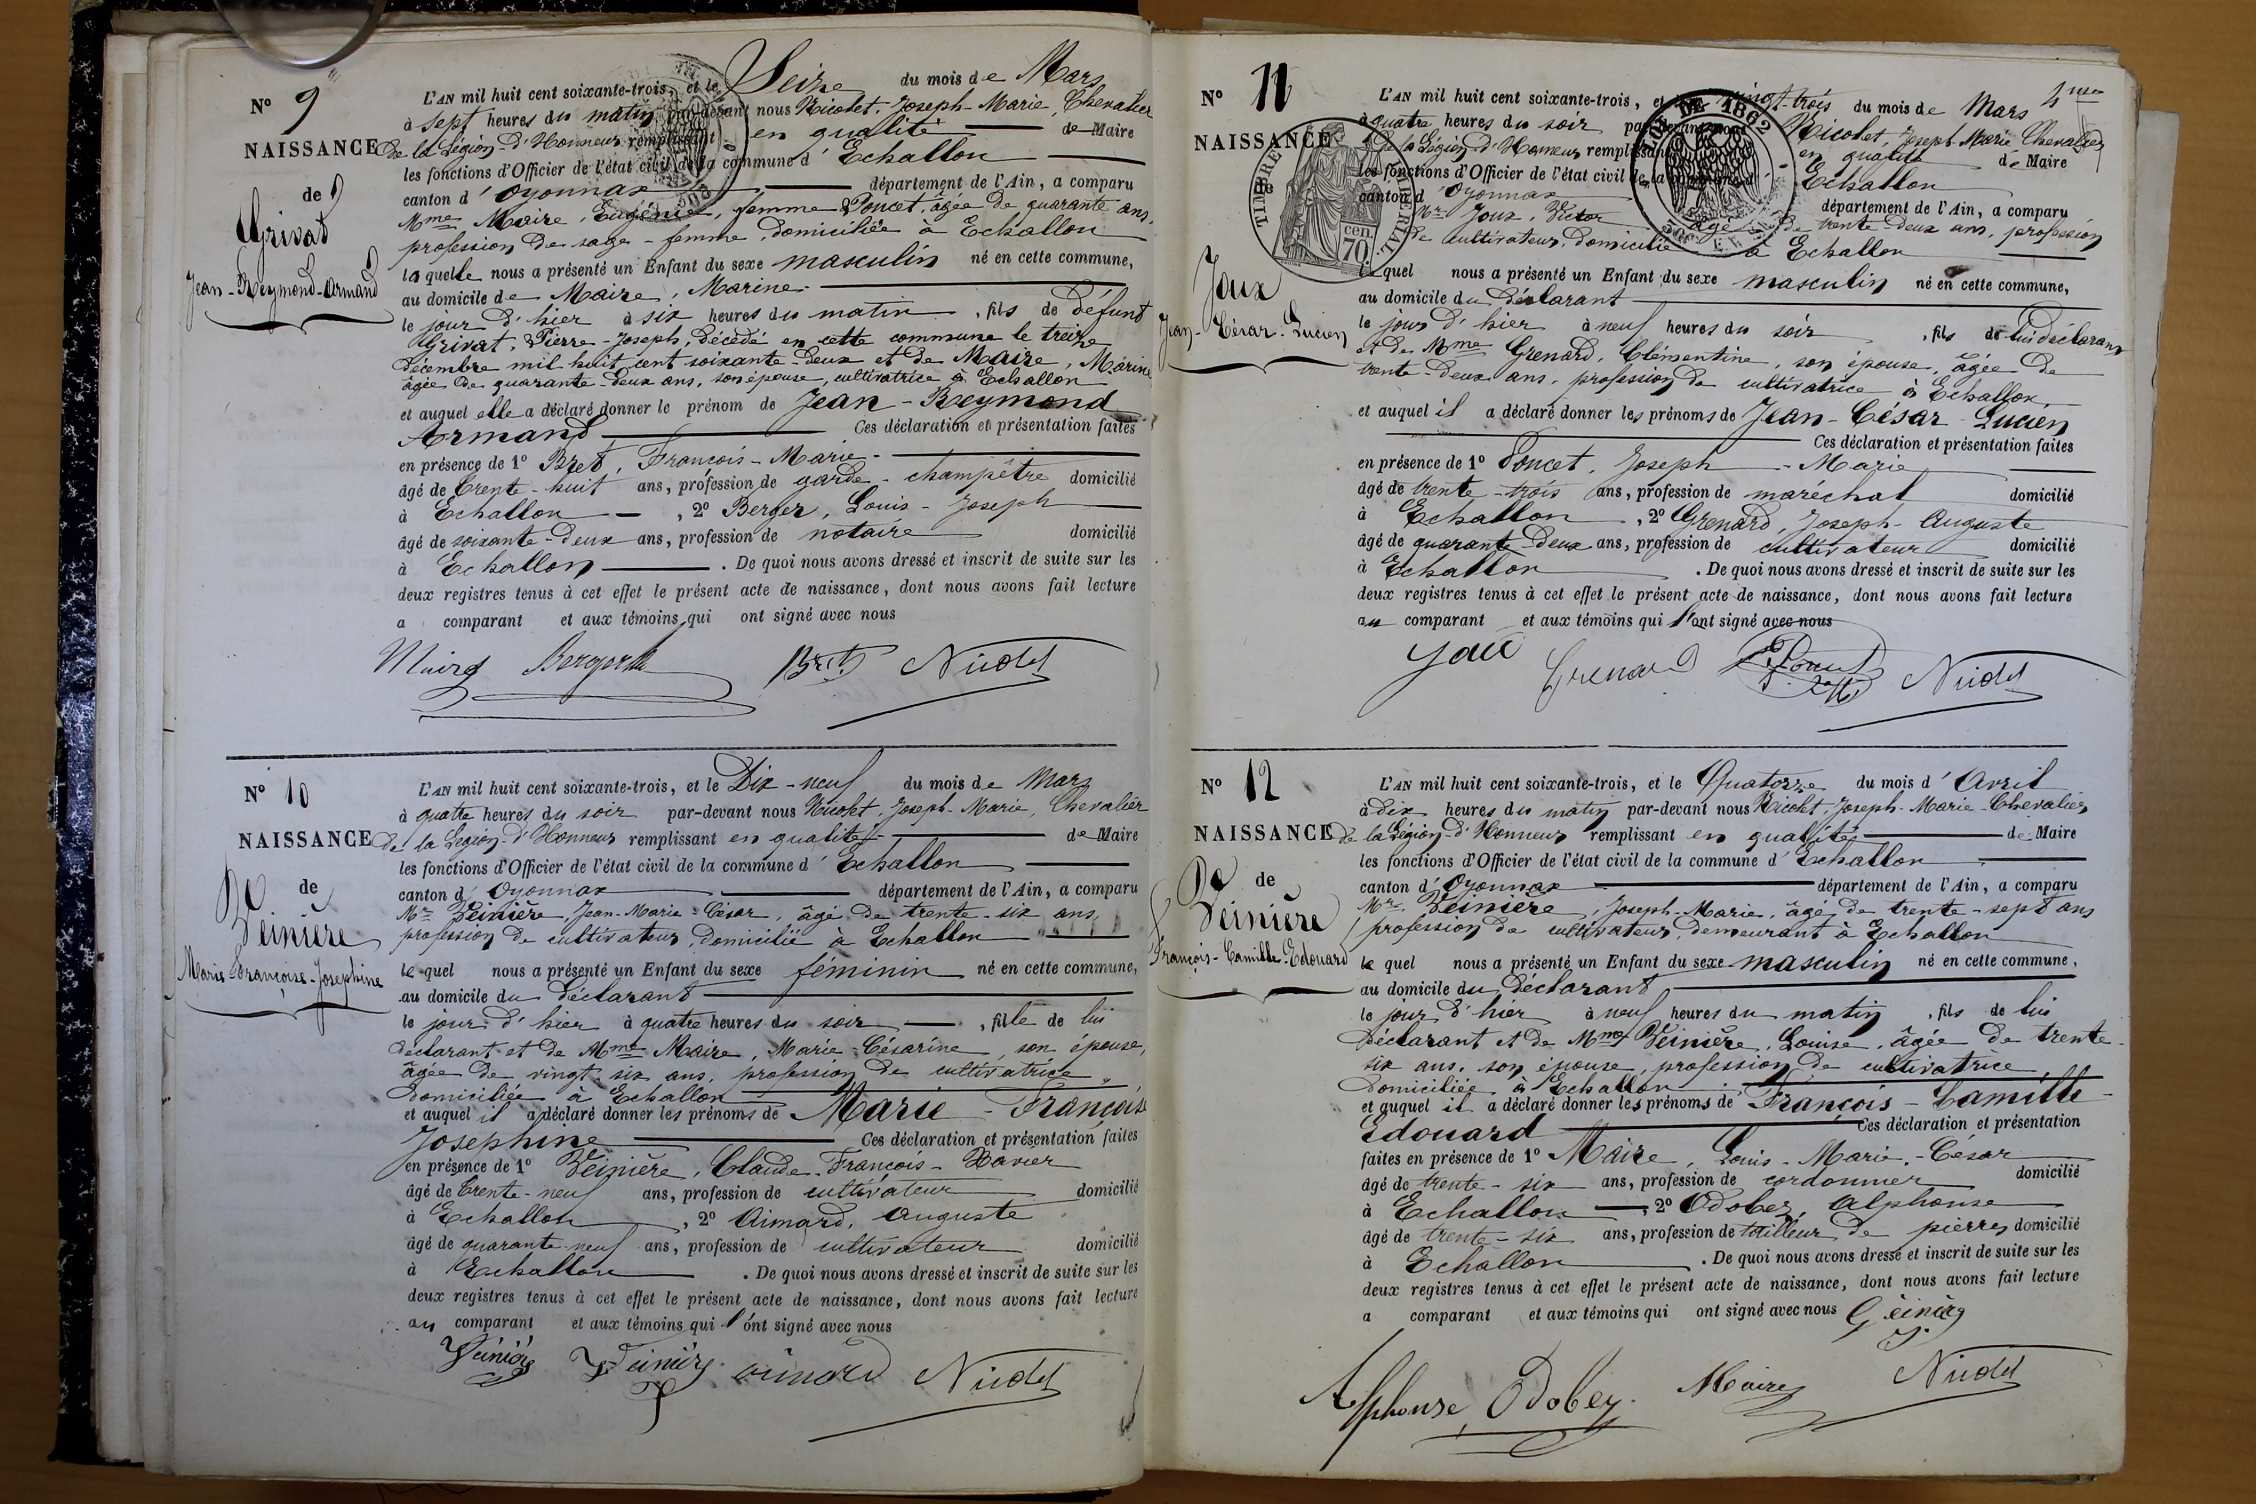 N° 9
NAISSANCE
de
Grivat
Jean-Reymond-Armand
L'AN mil huit cent soixante-trois, et le Seize du mois de Mars
à sept heures du matin par-devant nous Nicolet, Joseph-Marie, Chevalier
de la Légion d'Honneur remplissant en qualité de Maire
les fonctions d'Officier de l'état civil de la commune d'Echallon
canton d'Oyonnax département de l'Ain, a comparu
Mme Maire, Eugénie, femme Poncet, âgée de quarante ans,
profession de sage-femme, domiciliée à Echallon
laquelle nous a présenté un Enfant du sexe masculin né en cette commune,
au domicile de Maire, Marine
le jour d'hier à six heures du matin, fils de défunt
Grivat, Pierre-Joseph, décédé en cette commune le treize
décembre mil huit cent soixante-deux et de Maire, Marine
âgée de quarante-deux ans, son épouse, cultivatrice à Echallon
et auquel elle a déclaré donner le prénom de Jean-Reymond
Armand Ces déclaration et présentation faites
en présence de 1° Bret, François-Marie
âgé de trente-huit ans, profession de garde-champêtre domicilié
à Echallon, 2° Berger, Louis-Joseph
âgé de soixante-deux ans, profession de notaire domicilié
à Echallon. De quoi nous avons dressé et inscrit de suite sur les
deux registres tenus à cet effet le présent acte de naissance, dont nous avons fait lecture
a comparant et aux témoins qui ont signé avec nous
Maire Berger Bret Nicolet
N° 10
NAISSANCE
de
Veinière
Marie-Françoise-Josephine
L'AN mil huit cent soixante-trois, et le Dix-neuf du mois de Mars
à quatre heures du soir par-devant nous Nicolet, Joseph-Marie, Chevalier
de la Légion d'Honneur remplissant en qualité de Maire
les fonctions d'Officier de l'état civil de la commune d'Echallon
canton d'Oyonnax département de l'Ain, a comparu
Mr Veinière, Jean-Marie-César, âgé de trente-six ans,
profession de cultivateur, domicilié à Echallon
lequel nous a présenté un Enfant du sexe féminin né en cette commune,
au domicile du déclarant
le jour d'hier à quatre heures du soir, fille de lui
déclarant et de Mme Maire, Marie-Césarine, son épouse,
âgée de vingt-six ans, profession de cultivatrice
domiciliée à Echallon
et auquel il a déclaré donner les prénoms de Marie-Françoise
Josephine Ces déclaration et présentation faites
en présence de 1° Veinière, Claude-François-Xavier
âgé de trente-neuf ans, profession de cultivateur domicilié
à Echallon, 2° Aimard, Auguste
âgé de quarante-neuf ans, profession de cultivateur domicilié
à Echallon. De quoi nous avons dressé et inscrit de suite sur les
deux registres tenus à cet effet le présent acte de naissance, dont nous avons fait lecture
au comparant et aux témoins qui l'ont signé avec nous
Veinière Veinière aimard Nicolet
N° 11
NAISSANCE
TIMBRE IMPÉRIAL
70 cen.
DE 1862
Joux
Jean-César-Lucien
L'AN mil huit cent soixante-trois, et vingt-trois du mois de Mars
à quatre heures du soir par-devant nous Nicolet, Joseph-Marie Chevalier
de la Légion d'Honneur remplissant en qualité de Maire
les fonctions d'Officier de l'état civil de la commune d'Echallon
canton d'Oyonnax département de l'Ain, a comparu
Mr Joux, Victor âgé de trente-deux ans, profession
de cultivateur, domicilié à Echallon
lequel nous a présenté un Enfant du sexe masculin né en cette commune,
au domicile du déclarant
le jour d'hier à neuf heures du soir, fils de lui déclarant
et de Mme Grenard, Clémentine, son épouse, âgée de
trente-deux ans, profession de cultivatrice à Echallon,
et auquel il a déclaré donner les prénoms de Jean-César Lucien
Ces déclaration et présentation faites
en présence de 1° Poncet, Joseph-Marie
âgé de trente-trois ans, profession de maréchal domicilié
à Echallon, 2° Grenard, Joseph-Auguste
âgé de quarante-deux ans, profession de cultivateur domicilié
à Echallon. De quoi nous avons dressé et inscrit de suite sur les
deux registres tenus à cet effet le présent acte de naissance, dont nous avons fait lecture
au comparant et aux témoins qui l'ont signé avec nous
Joux Grenard Poncet Nicolet
N° 12
NAISSANCE
de
Veinière
François-Camille-Edouard
L'AN mil huit cent soixante-trois, et le Quatorze du mois d'Avril
à dix heures du matin par-devant nous Nicolet, Joseph-Marie-Chevalier
de la Légion-d'Honneur remplissant en qualité de Maire
les fonctions d'Officier de l'état civil de la commune d'Echallon
canton d'Oyonnax département de l'Ain, a comparu
Mr Veinière, Joseph-Marie, âgé de trente-sept ans
profession de cultivateur, demeurant à Echallon
lequel nous a présenté un Enfant du sexe masculin né en cette commune,
au domicile du déclarant
le jour d'hier à neuf heures du matin, fils de lui
déclarant et de Mme Veinière, Louise, âgée de trente-
six ans, son épouse, profession de cultivatrice,
domiciliée à Echallon
et auquel il a déclaré donner les prénoms de François-Camille-
Edouard Ces déclaration et présentation
faites en présence de 1° Maire, Louis-Marie-César
âgé de trente-six ans, profession de cordonnier domicilié
à Echallon, 2° Odobez, Alphonse
âgé de trente-six ans, profession de tailleur de pierres domicilié
à Echallon. De quoi nous avons dressé et inscrit de suite sur les
deux registres tenus à cet effet le présent acte de naissance, dont nous avons fait lecture
a comparant et aux témoins qui ont signé avec nous Veinière
Alphonse Odobez Maire Nicolet